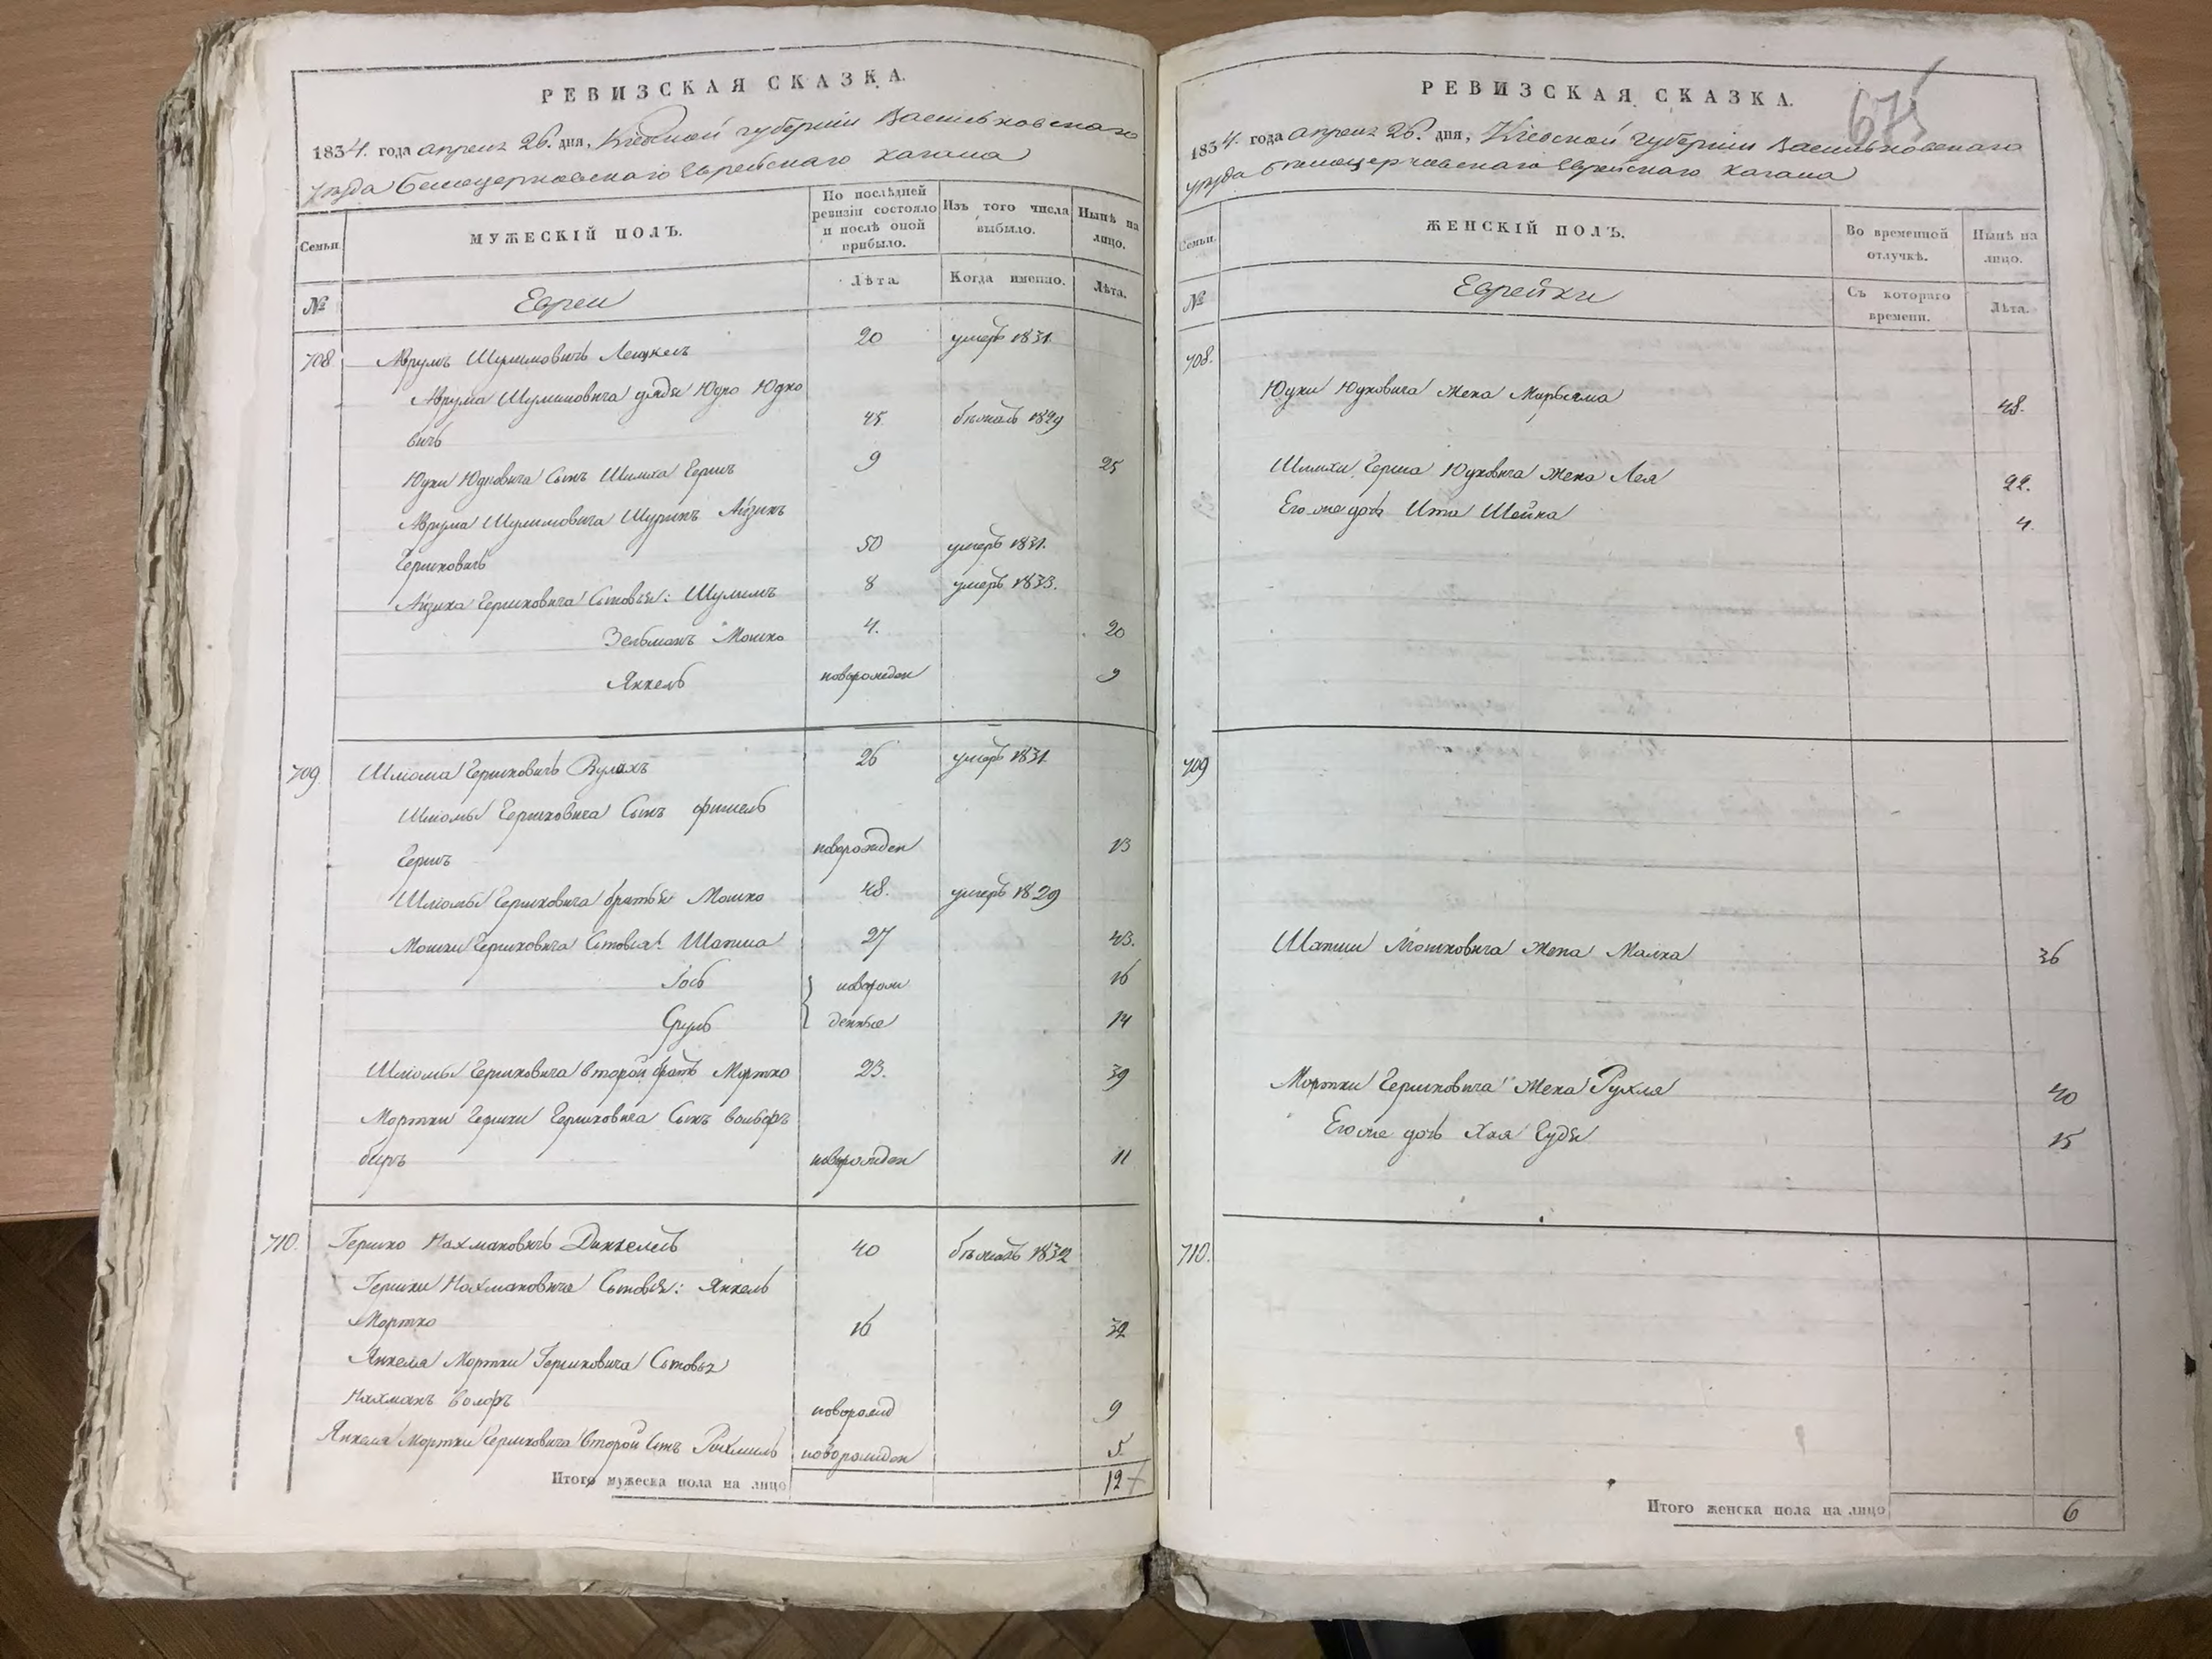 РЕВИЗСКАЯ СКАЗКА.
1834. года апреля 26. дня, Кіевской губерніи Васильковскаго
уезда Белоцерковскаго Еврейскаго Кагала
Семьи
МУЖЕСКІЙ ПОЛЪ.
По послѣдней ревизіи состояло и послѣ оной прибыло.
Изъ того числа выбыло.
Нынѣ на лицо.
№
Евреи
Лѣта.
Когда именно.
Лѣта.
708 Аврумъ Шулимовичъ 20 умеръ 1831
Аврума Шулимовича дядя Юдко Юдко
вичъ 45 бѣжалъ 1829
Юдки Юдковича Сынъ Шимха Гершъ 9 25
Аврума Шулимовича Шуринъ Айзикъ
Гершковичъ 50 умеръ 1831.
Айзика Гершковича Сыновья: Шулимъ 8 умеръ 1833.
Зельманъ Мошко 4. 20
Янкель новорожден 9
709 Шлiома Гершковичъ 26 умеръ 1831
Шлiомы Гершковича Сынъ Фишель
Гершъ новорожден 13
Шлiомы Гершковича братья Мошко 48. умеръ 1829
Мошки Гершковича Сыновья: Шапша 27 43.
Iось новорож 16
Сруль денные 14
Шлiомы Гершковича второй братъ Мортко 23. 39
Мортки Гершки Гершковича Сынъ Вольфъ
беръ новорожден 11
710. Гершко Нахмановичъ 40 бѣжалъ 1832
Гершки Нахмановича Сыновья: Янкель
Мортко 16 32
Янкеля Мортки Гершковича Сыновья
Нахманъ Волфъ новорожд 9
Янкеля Мортки Гершковича второй Сынъ новорожден 5.
Итого мужеска пола на лицо 12
675
РЕВИЗСКАЯ СКАЗКА.
1834. года апреля 26. дня, Кіевской Губерніи Васильковскаго
уезда Белоцерковскаго Еврейскаго Кагала
Семьи.
ЖЕНСКІЙ ПОЛЪ.
Во временной отлучкѣ.
Нынѣ на лицо.
№
Еврейки
Съ котораго времени.
Лѣта.
708.
Юдки Юдковича жена Марьяма 48.
Шимхи Герша Юдковича жена Лея 22.
Его же дочь Ита Шейна 4.
709
Шапши Мошковича жена Малка 36
Мортки Гершковича жена Рухля 40
Его же дочь Хая 15
710.
Итого женска пола на лицо 6